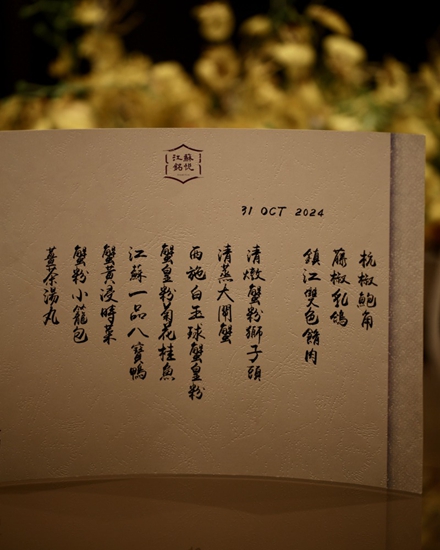 江蘇
銘悦
31 OCT 2024
杭椒鮑角
藤椒乳鴿
鎮江雙色餚肉
清燉蟹粉獅子頭
清蒸大閘蟹
西施白玉球蟹皇粉
蟹皇粉菊花桂魚
江蘇一品八寶鴨
蟹黃浸時菜
蟹粉小籠包
薑茶湯丸